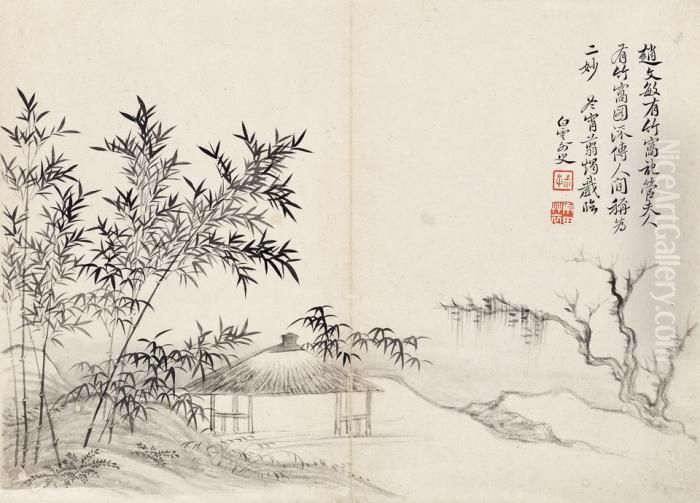 趙文敏有竹窩記管夫人
有竹窩圖流傳人間稱為
二妙 冬宵翦燭戲臨
白雲外史
NiceArtGallery.com